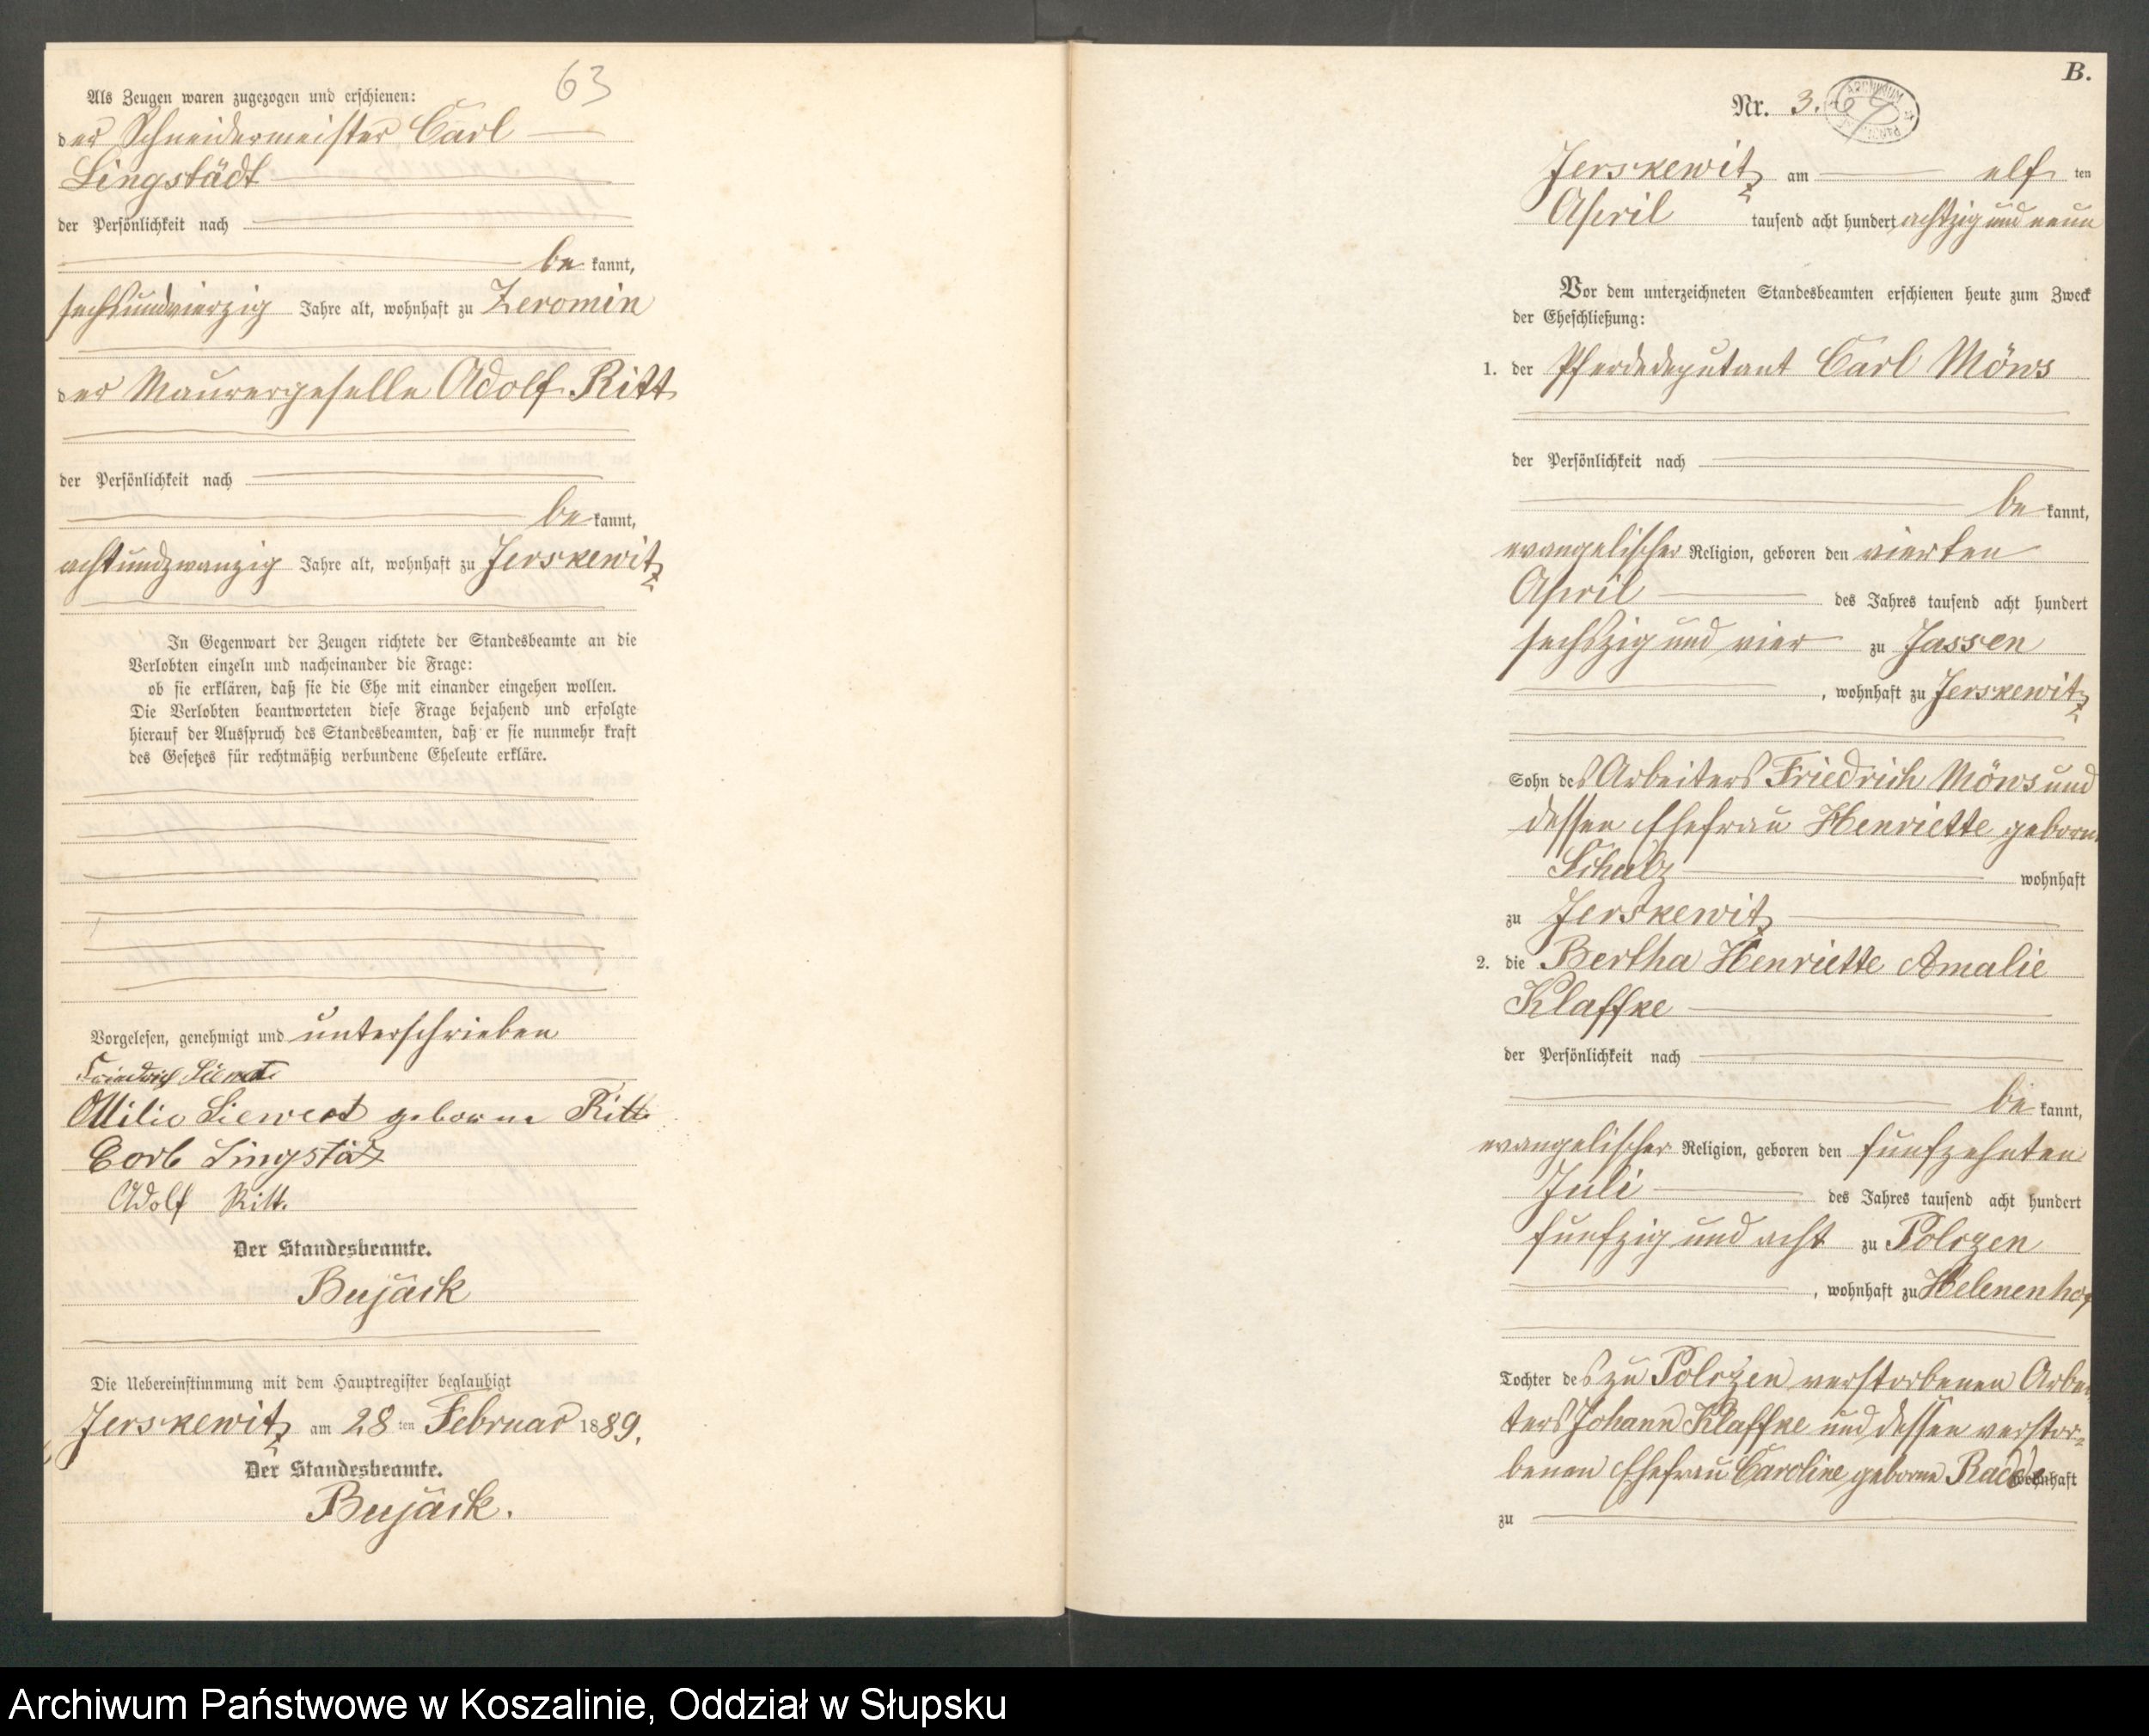 63
Als Zeugen waren zugezogen und erschienen:
der Schneidermeister Carl
Lingstädt
der Persönlichkeit nach
be kannt,
sechsundvierzig Jahre alt, wohnhaft zu Zeromin
der Maurergeselle Adolf Ritt
der Persönlichkeit nach
be kannt,
achtundzwanzig Jahre alt, wohnhaft zu Jerskewitz
In Gegenwart der Zeugen richtete der Standesbeamte an die
Verlobten einzeln und nacheinander die Frage:
ob sie erklären, daß sie die Ehe mit einander eingehen wollen.
Die Verlobten beantworteten diese Frage bejahend und erfolgte
hierauf der Ausspruch des Standesbeamten, daß er sie nunmehr kraft
des Gesetzes für rechtmäßig verbundene Eheleute erkläre.
Vorgelesen, genehmigt und unterschrieben
Friedrich
Ottilie Siewert geborne Ritt
Carl Lingstät
Adolf Ritt.
Der Standesbeamte.
Bujack
Die Uebereinstimmung mit dem Hauptregister beglaubigt
Jerskewitz am 28 ten Februar 1889.
Der Standesbeamte.
Bujack.
B.
Nr. 3.
Jerskewitz am elf ten
April tausend acht hundert achtzig und neun
Vor dem unterzeichneten Standesbeamten erschienen heute zum Zweck
der Eheschließung:
1. der Pferdedeputant Carl Möws
der Persönlichkeit nach
be kannt,
evangelischer Religion, geboren den vierten
April des Jahres tausend acht hundert
sechszig und vier zu Jassen
, wohnhaft zu Jerskewitz
Sohn des Arbeiters Friedrich Möws und
dessen Ehefrau Henriette geborne
Schulz wohnhaft
zu Jerskewitz
2. die Bertha Henriette Amalie
Klaffke
der Persönlichkeit nach
be kannt,
evangelischer Religion, geboren den funfzehnten
Juli des Jahres tausend acht hundert
funfzig und acht zu Polczen
, wohnhaft zu Helenenhof
Tochter des zu Polczen verstorbenen Arbei
ters Johann Klaffke und dessen verstor-
benen Ehefrau Caroline geborne Radde wohnhaft
zu
Archiwum Państwowe w Koszalinie, Oddział w Słupsku